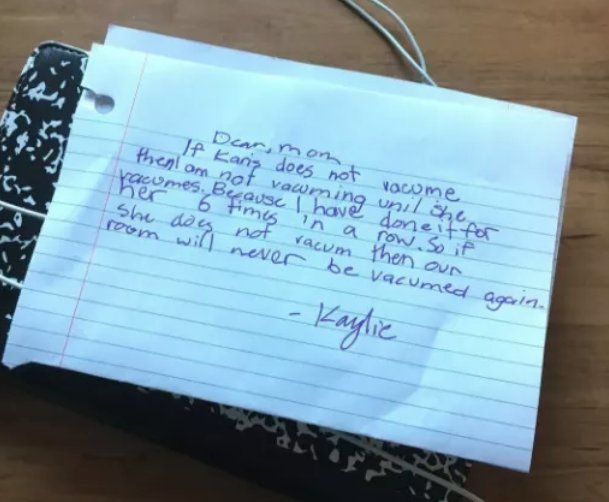 Dear, mom
If Karis does not vacume
then I am not vacuming unil she
vacumes. Because I have done it for
her 6 times in a row. So if
she does not vacum then our
room will never be vacumed again.
- Kaylie